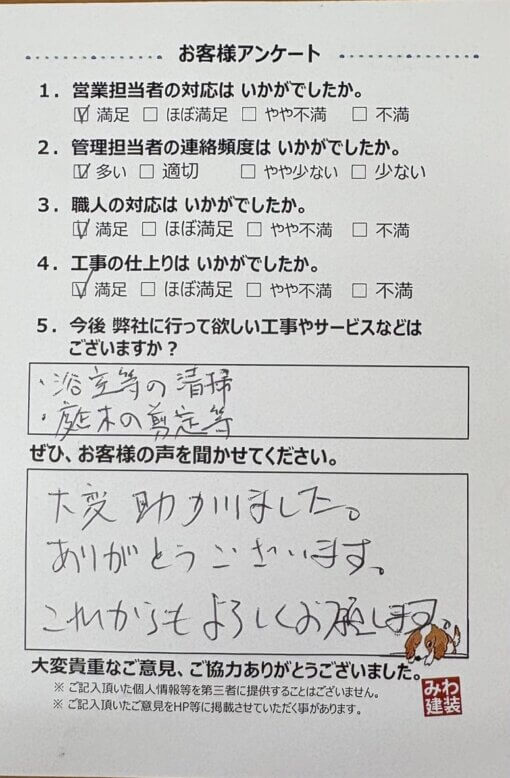 お客様アンケート
1．営業担当者の対応は いかがでしたか。
☑ 満足 □ ほぼ満足 □ やや不満 □ 不満
2．管理担当者の連絡頻度は いかがでしたか。
☑ 多い □ 適切 □ やや少ない □ 少ない
3．職人の対応は いかがでしたか。
☑ 満足 □ ほぼ満足 □ やや不満 □ 不満
4．工事の仕上りは いかがでしたか。
☑ 満足 □ ほぼ満足 □ やや不満 □ 不満
5．今後 弊社に行って欲しい工事やサービスなどは
ございますか？
・浴室等の清掃
・庭木の剪定等
ぜひ、お客様の声を聞かせてください。
大変助かりました。
ありがとうございます。
これからもよろしくお願します。
大変貴重なご意見、ご協力ありがとうございました。
※ ご記入頂いた個人情報等を第三者に提供することはございません。
※ ご記入頂いたご意見をHP等に掲載させていただく事があります。
みわ
建装